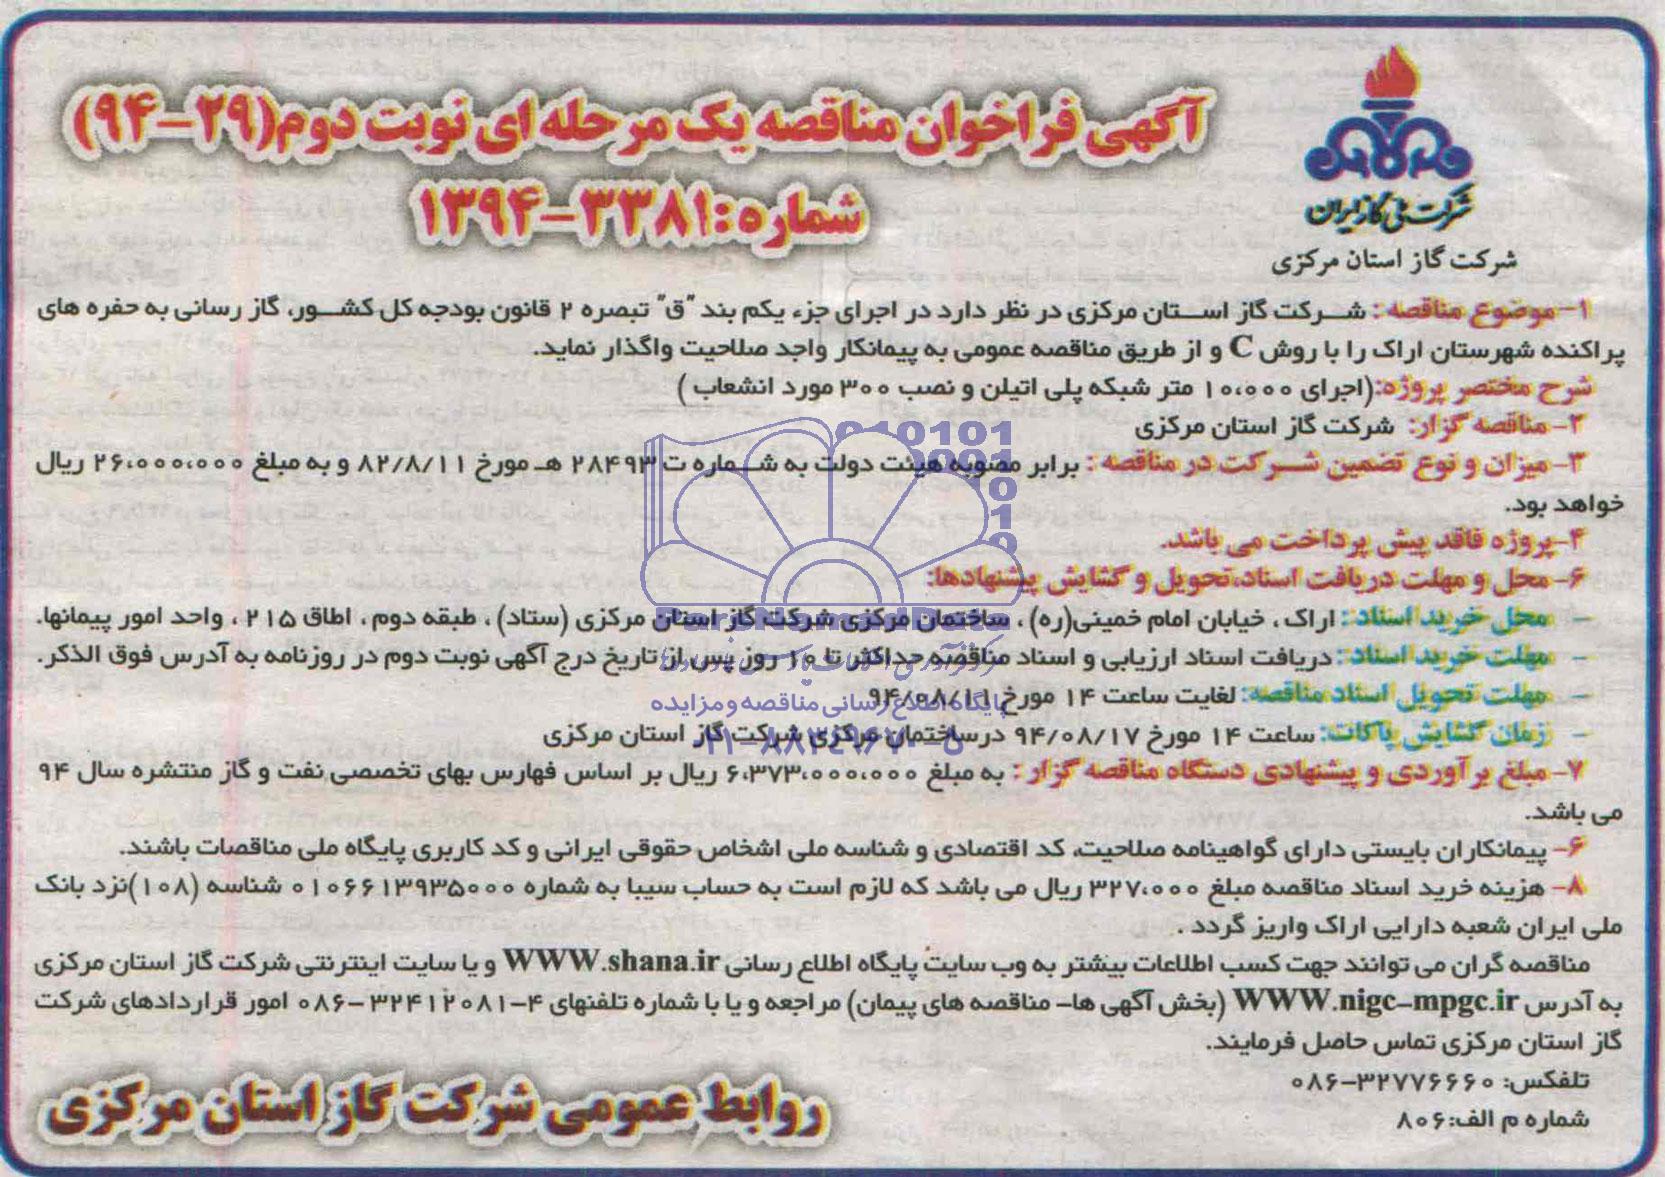 شرکت ملی گاز ایران
شرکت گاز استان مرکزی
آگهی فراخوان مناقصه یک مرحله ای نوبت دوم(۲۹-۹۴)
شماره:۳۳۸۱-۱۳۹۴
۱- موضوع مناقصه : شرکت گاز استان مرکزی در نظر دارد در اجرای جزء یکم بند "ق" تبصره ۲ قانون بودجه کل کشور، گاز رسانی به حفره های
پراکنده شهرستان اراک را با روش C و از طریق مناقصه عمومی به پیمانکار واجد صلاحیت واگذار نماید.
شرح مختصر پروژه:(اجرای ۱۰،۰۰۰ متر شبکه پلی اتیلن و نصب ۳۰۰ مورد انشعاب )
۲- مناقصه گزار: شرکت گاز استان مرکزی
۳- میزان و نوع تضمین شرکت در مناقصه : برابر مصوبه هیئت دولت به شماره ت ۲۸۴۹۳ هـ مورخ ۸۲/۸/۱۱ و به مبلغ ۲۶،۰۰۰،۰۰۰ ریال
خواهد بود.
۴-پروژه فاقد پیش پرداخت می باشد.
۶- محل و مهلت دریافت اسناد،تحویل و گشایش پیشنهادها:
- محل خرید اسناد : اراک ، خیابان امام خمینی(ره) ، ساختمان مرکزی شرکت گاز استان مرکزی (ستاد) ، طبقه دوم ، اطاق ۲۱۵ ، واحد امور پیمانها.
- مهلت خرید اسناد : دریافت اسناد ارزیابی و اسناد مناقصه حداکثر تا ۱۰ روز پس از تاریخ درج آگهی نوبت دوم در روزنامه به آدرس فوق الذکر.
- مهلت تحویل اسناد مناقصه: لغایت ساعت ۱۴ مورخ ۹۴/۰۸/۱۱
- زمان گشایش پاکات: ساعت ۱۴ مورخ ۹۴/۰۸/۱۷ درساختمان مرکزی شرکت گاز استان مرکزی
۷- مبلغ برآوردی و پیشنهادی دستگاه مناقصه گزار : به مبلغ ۶،۳۷۳،۰۰۰،۰۰۰ ریال بر اساس فهارس بهای تخصصی نفت و گاز منتشره سال ۹۴
می باشد.
۶- پیمانکاران بایستی دارای گواهینامه صلاحیت، کد اقتصادی و شناسه ملی اشخاص حقوقی ایرانی و کد کاربری پایگاه ملی مناقصات باشند.
۸- هزینه خرید اسناد مناقصه مبلغ ۳۲۷،۰۰۰ ریال می باشد که لازم است به حساب سیبا به شماره ۰۱۰۶۶۱۳۹۳۵۰۰۰ شناسه (۱۰۸)نزد بانک
ملی ایران شعبه دارایی اراک واریز گردد .
مناقصه گران می توانند جهت کسب اطلاعات بیشتر به وب سایت پایگاه اطلاع رسانی WWW.shana.ir و یا سایت اینترنتی شرکت گاز استان مرکزی
به آدرس WWW.nigc-mpgc.ir (بخش آگهی ها- مناقصه های پیمان) مراجعه و یا با شماره تلفنهای ۴-۳۲۴۱۲۰۸۱-۰۸۶ امور قراردادهای شرکت
گاز استان مرکزی تماس حاصل فرمایند.
تلفکس: ۳۲۷۷۶۶۶۰-۰۸۶
شماره م الف:۸۰۶
روابط عمومی شرکت گاز استان مرکزی
ParsNamadData
پایگاه اطلاع رسانی مناقصه و مزایده